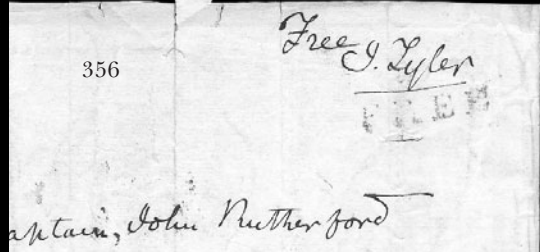 Free J. Tyler
356
FREE
aptain, John Rutherford